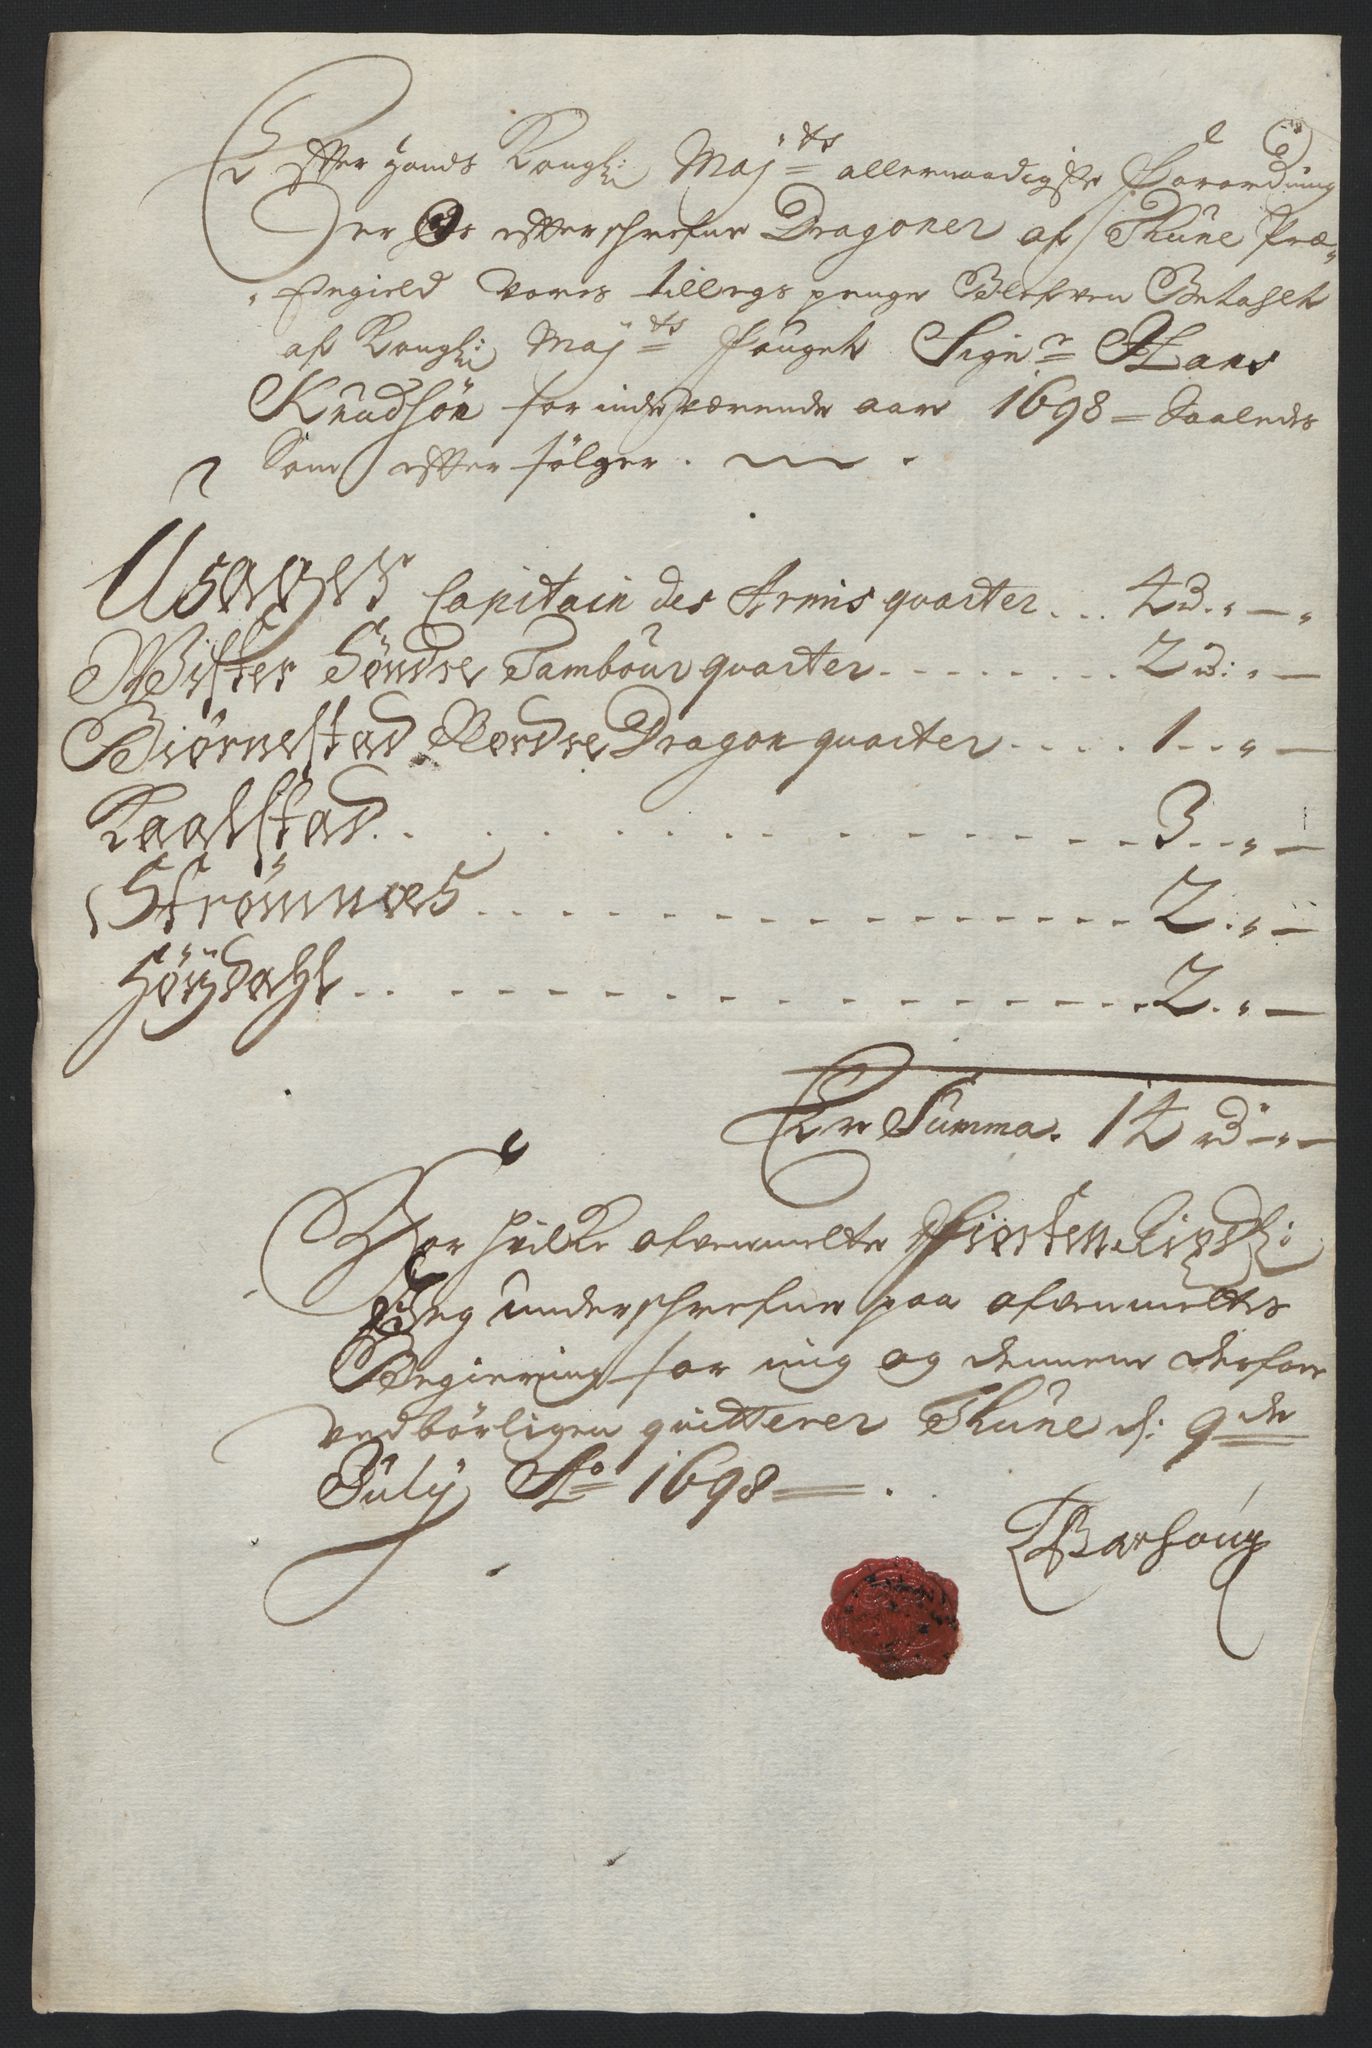 Effter hands Kongl: Maj:ts allernaadigste Forordning
er Os effterschrefne Dragoner af Thune Præ-
stegield vores tillegs penge Blefven Betahlt
af Kongl: Maj:ts Fouget Sign:r Hans
Knudsön for inderværende aar 1698 = Saaledis
Som effter fölger.
Capitain des Armis quarter ... 4 rd. " — "
Söndre Tambour quarter ........ 2 rd: " —
Biörnestad Nordre Dragon quarter .... 1 .. " —
Kaalstad. . . . . . . 3 .. " —
Strömnæs . . . . . . . 2 . " —
Höydahl . . . . . . . 2 . " —
Er Summa. 14 rd — " —
For hvilke ofvenmelte fiorten Rixdl:
Jeg underschrefne paa ofvenmeltes
Begiering for mig og dennem derfore
vedbörligen quitterer Thune d: 9de
July Ao 1698 = .